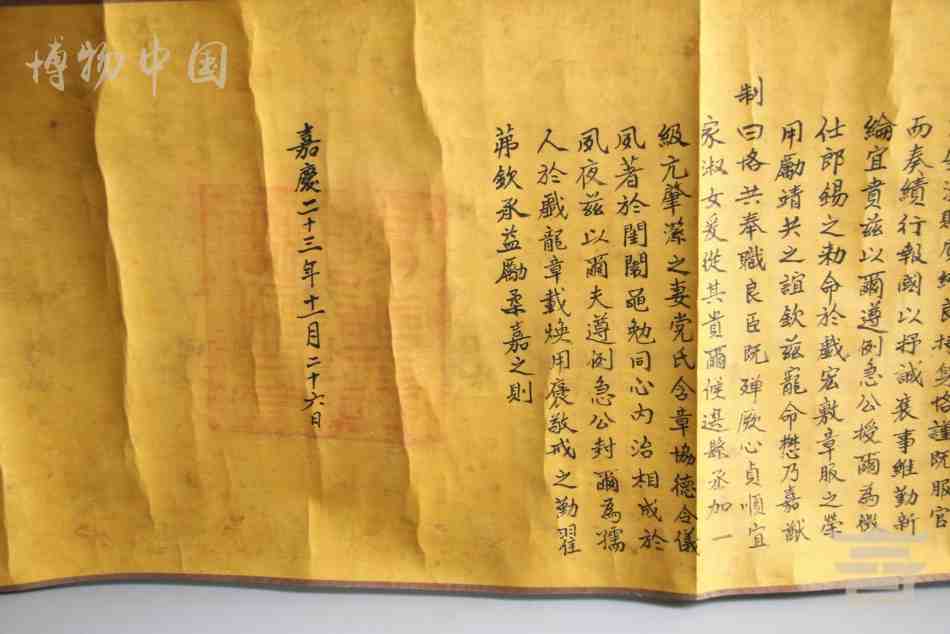 博物中国
持躬恪謹既服官
而奏績行報國以抒誠襄事維勤新
綸宜賁茲以爾遵例急公授爾為徵
仕郎錫之勅命於戲宏敷章服之榮
用勵靖共之誼欽茲寵命懋乃嘉猷
制
曰恪共奉職良臣既殫厥心貞順宜
家淑女爰從其貴爾候選縣丞加一
級亢肇濚之妻党氏含章協德令儀
夙著於閨闥黽勉同心內治相成於
夙夜茲以爾夫遵例急公封爾為孺
人於戲龍章載煥用褒敬戒之勤翟
茀欽承益勵柔嘉之則
嘉慶二十三年十一月二十六日